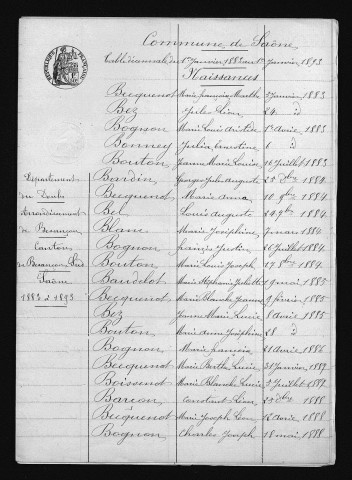 Commune de Saône
Table décennale du 1er Janvier 1883 au 1er Janvier 1893
Naissances
Becquenot Marie Françoise Marthe 3 Janvier 1883
Bez Jules Léon 24 d
Bognon Marie Louis Aristide 1er Avril 1883
Bonney Julia Ernestine 6 d
Bouton Jeanne Marie Louise 16 Juillet 1883
Bardin Georges Jules Auguste 1884
Becquenot Marie Anna 10 9bre 1884
Bel Louis Auguste 1884
Blanc Marie Joséphine mai 1884
Bognon François Justin 26 Juillet 1884
Bouton Marie Louis Joseph 17 8bre 1884
Baudelot Marie Stéphanie Juliette 19 mai 1885
Becquenot Marie Blanche Jeanne 9 février 1885
Bez Jeanne Marie Lucie 8 Avril 1885
Bouton Marie Anne Joséphine 28 d
Bognon Marie François 21 Avril 1886
Becquenot Marie Berthe Lucie 31 Janvier 1887
Boissenot Marie Blanche Lucie Juillet 1887
Barçon Constant Léon 1888
Becquenot Marie Joseph Léon 12 Avril 1888
Bognon Charles Joseph 18 mai 1888
Département
du Doubs
Arrondissement
de Besançon
Canton
de Besançon Sud
Saône
1883 à 1893